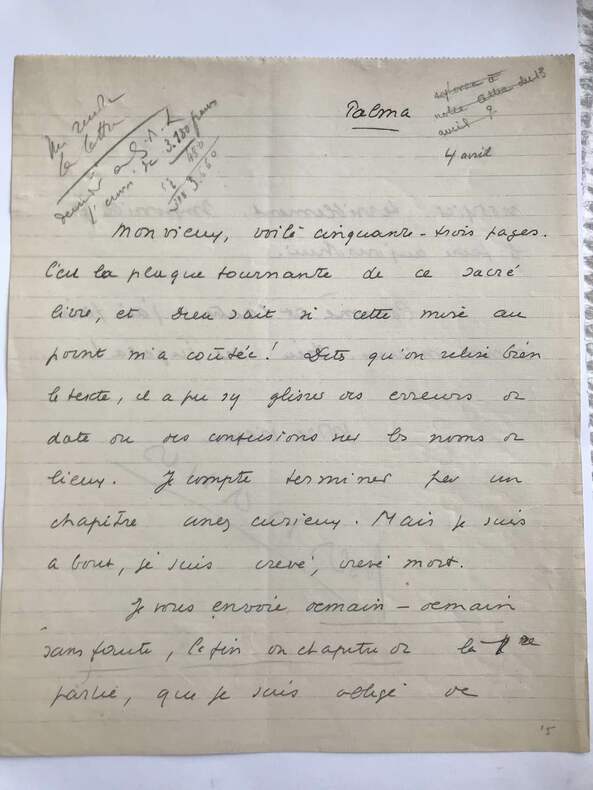 Palma
4 avril
Mon vieux, voilà cinquante-trois pages.
C'est la plaque tournante de ce sacré
livre, et Dieu sait si cette mise au
point m'a coûtée ! Dites qu'on relise bien
le texte, il a pu s'y glisser des erreurs de
date ou des confusions sur les noms de
lieux. Je compte terminer par un
chapitre assez curieux. Mais je suis
à bout, je suis crevé, crevé mort.
Je vous envoie demain – demain
sans faute, la fin du chapitre de la 1re
partie, que je suis obligé de
la lettre
3.180 pour
480
3.660
avril 9
15